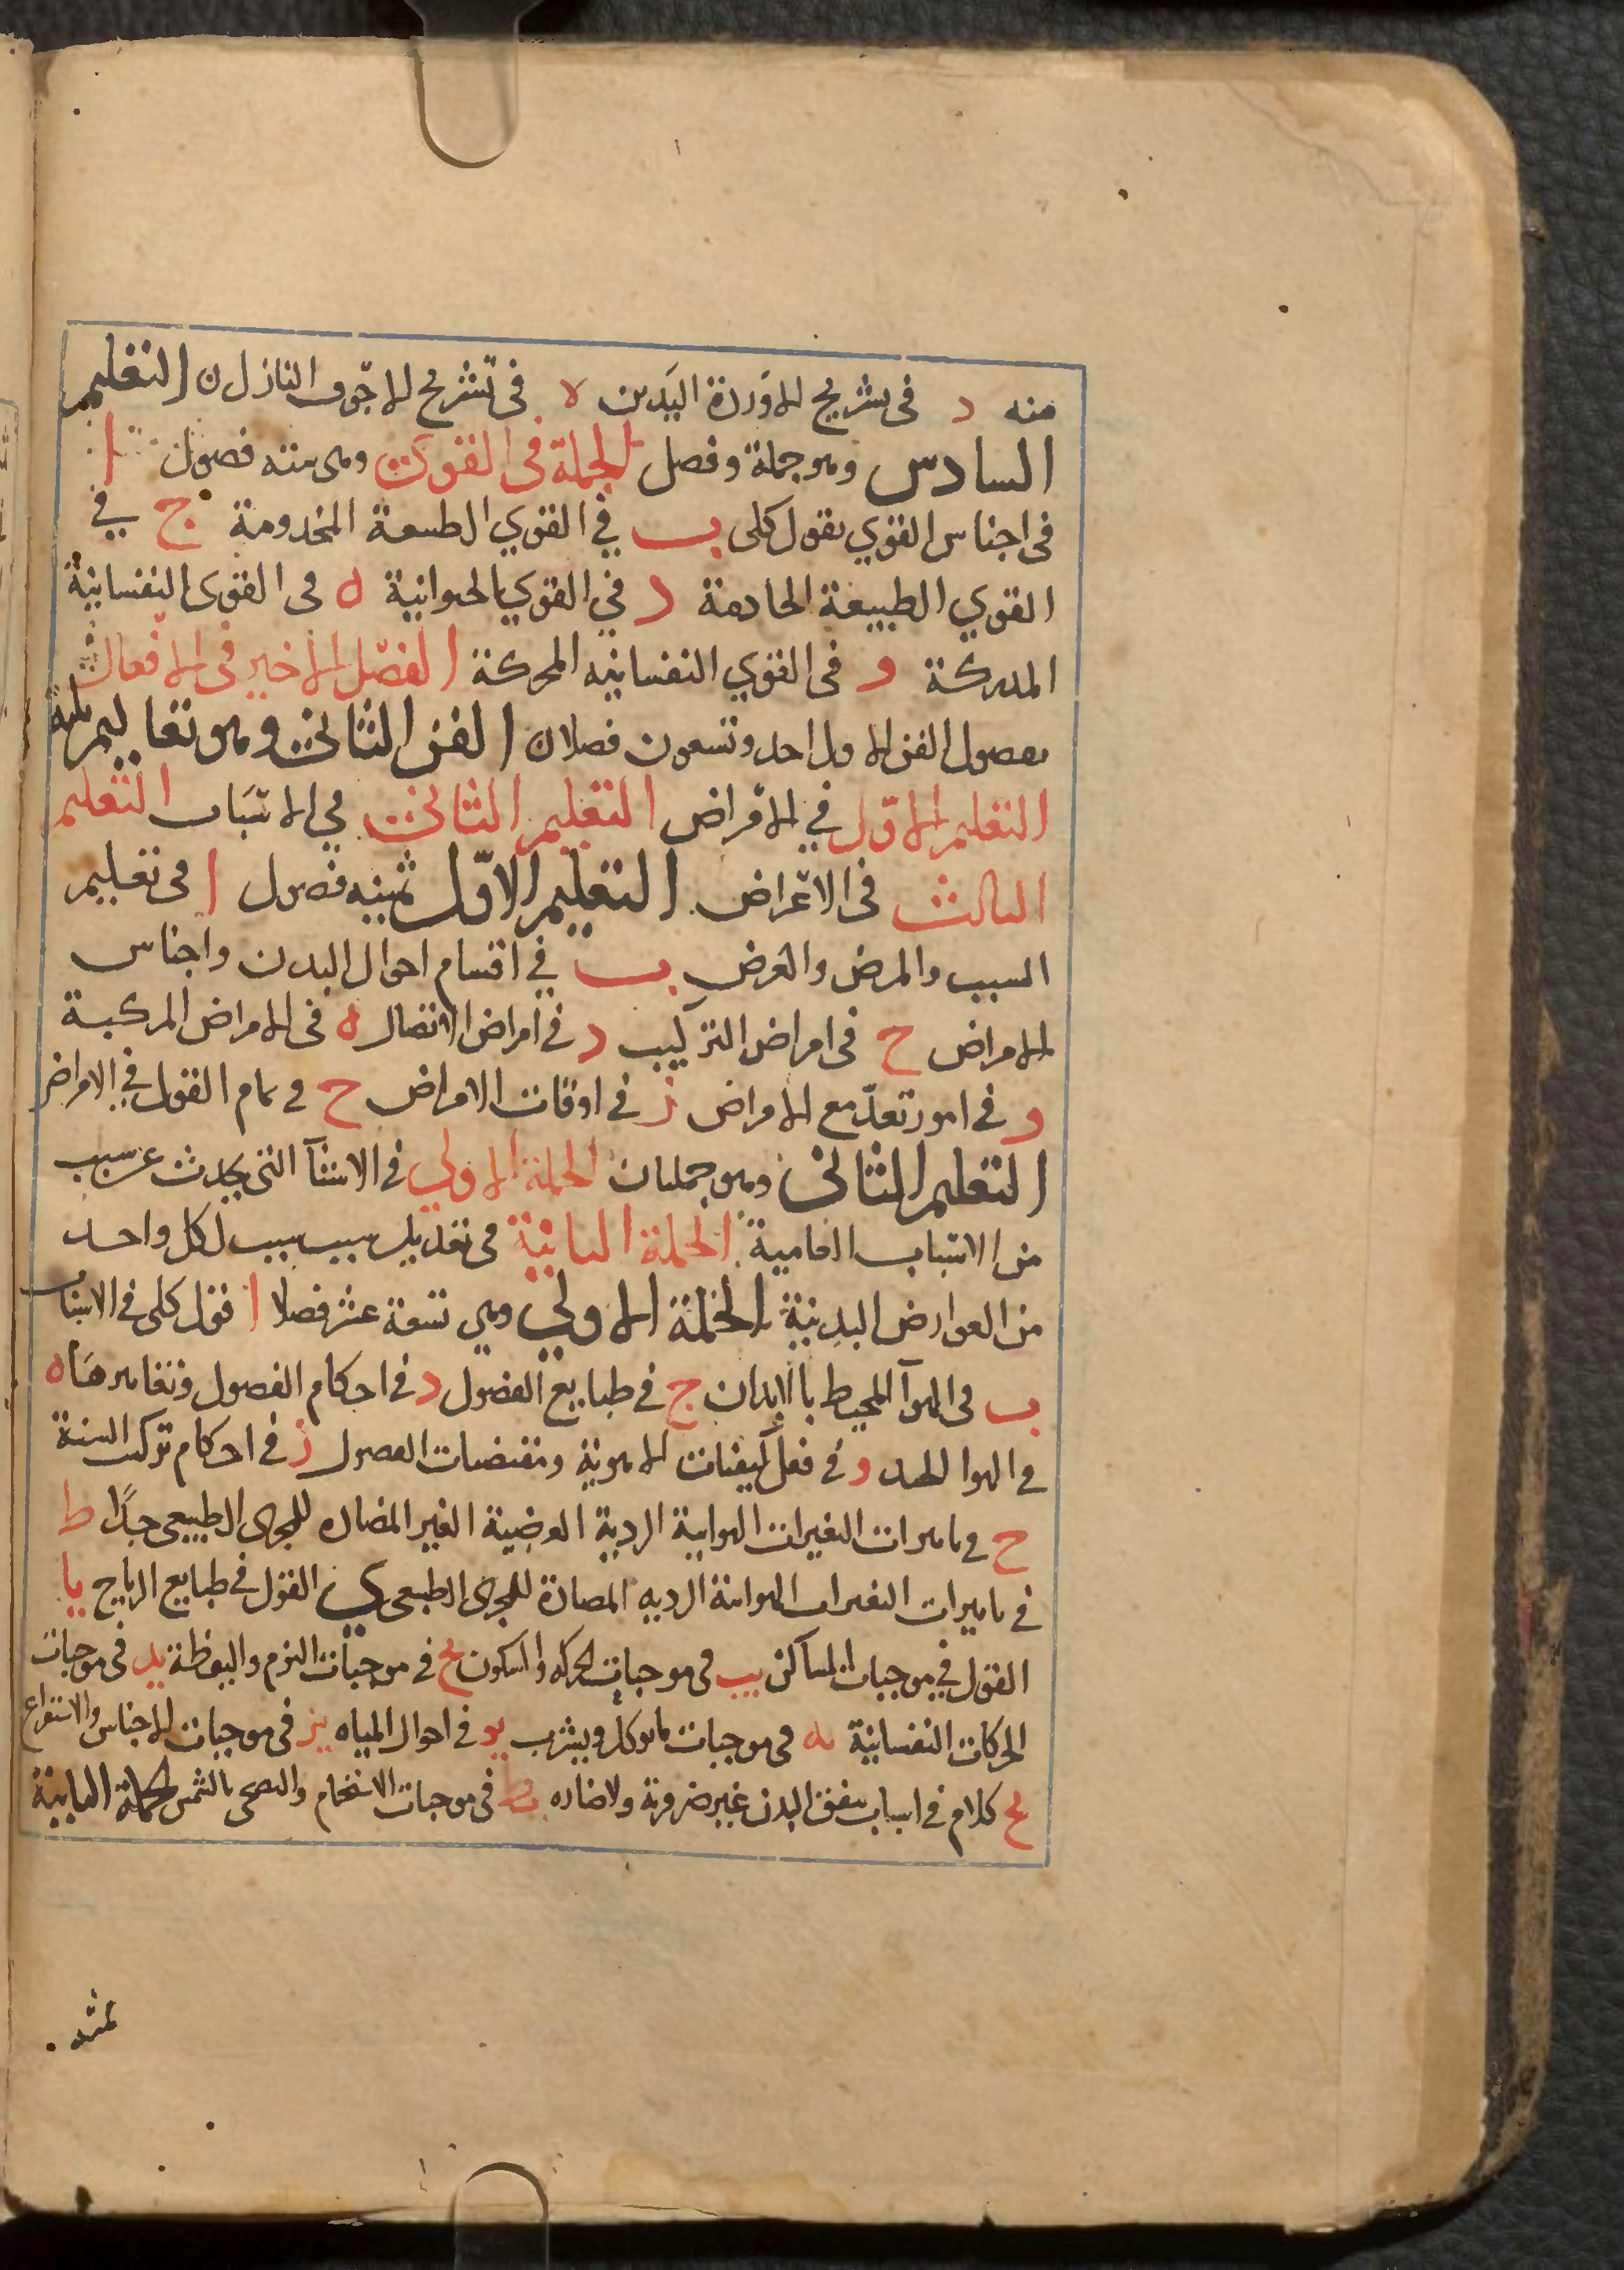 منه د في تشريح الاوردة اليدين ه في تشريح الاجوف النازل ن التعليم
السادس وهو جملة وفصل الجملة في القوى وهي ستة فصول ا
في اجناس القوي بقول كلي ب في القوي الطبيعة المخدومة ج في
القوي الطبيعة الخادمة د في القوي الحيوانية ه في القوى النفسانية
المدركة و في القوي النفسانيه المحركة الفصل الاخير في الافعال
فصول الفن الاول احد وتسعون فصلا ن الفن الثاني وهو تعاليم ثلثة
التعليم الاول في الامراض التعليم الثاني في الاسباب التعليم
الثالث في الاعراض التعليم الاول ثمنيه فصول ا في تعليم
السبب والمرض والعرض ب في اقسام احوال البدن واجناس
الامراض ج في امراض التركيب د في امراض الاتصال ه في الامراض المركبة
و في امور تعد مع الامراض ز في اوقات الامراض ح في تمام القول في الامراض
التعليم الثاني وهو جملتان الجملة الاولي في الاشيآ التي يحدث عن سبب
من الاسباب العامية الجملة الثانية في تعديل سبب سبب لكل واحد
من العوارض البدنية الجملة الاولي وهي تسعة عشر فصلا ا قول كلي في الاسباب
ب في الهوآ المحيط بالابدان ج في طبايع الفصول د في احكام الفصول وتغايرها ه
في الهوا الجيد و في فعل كيفيات الاهوية ومقتضيات الفصول ز في احكام تركيب السنة
ح في تاثيرات التغيرات الهوايية الردية العرضية الغير المضاده للمجرى الطبيعي جدًا ط
في تاثيرات التغيرات الهوائية الرديه المضادة للمجرى الطبيعي ي القول في طبايع الرياح يا
القول في موجبات المساكن يب في موجبات الحركه والسكون يج في موجبات النوم واليقظة يد في موجبات
الحركات النفسانية يه في موجبات ما يوكل ويشرب يو في احوال المياه يز في موجبات الاحتباس والاستفراغ
يح كلام في اسباب يتفق البدن غير ضرورية ولا ضاره يط في موجبات الاستحمام والتضحي بالشمس الجملة الثانية